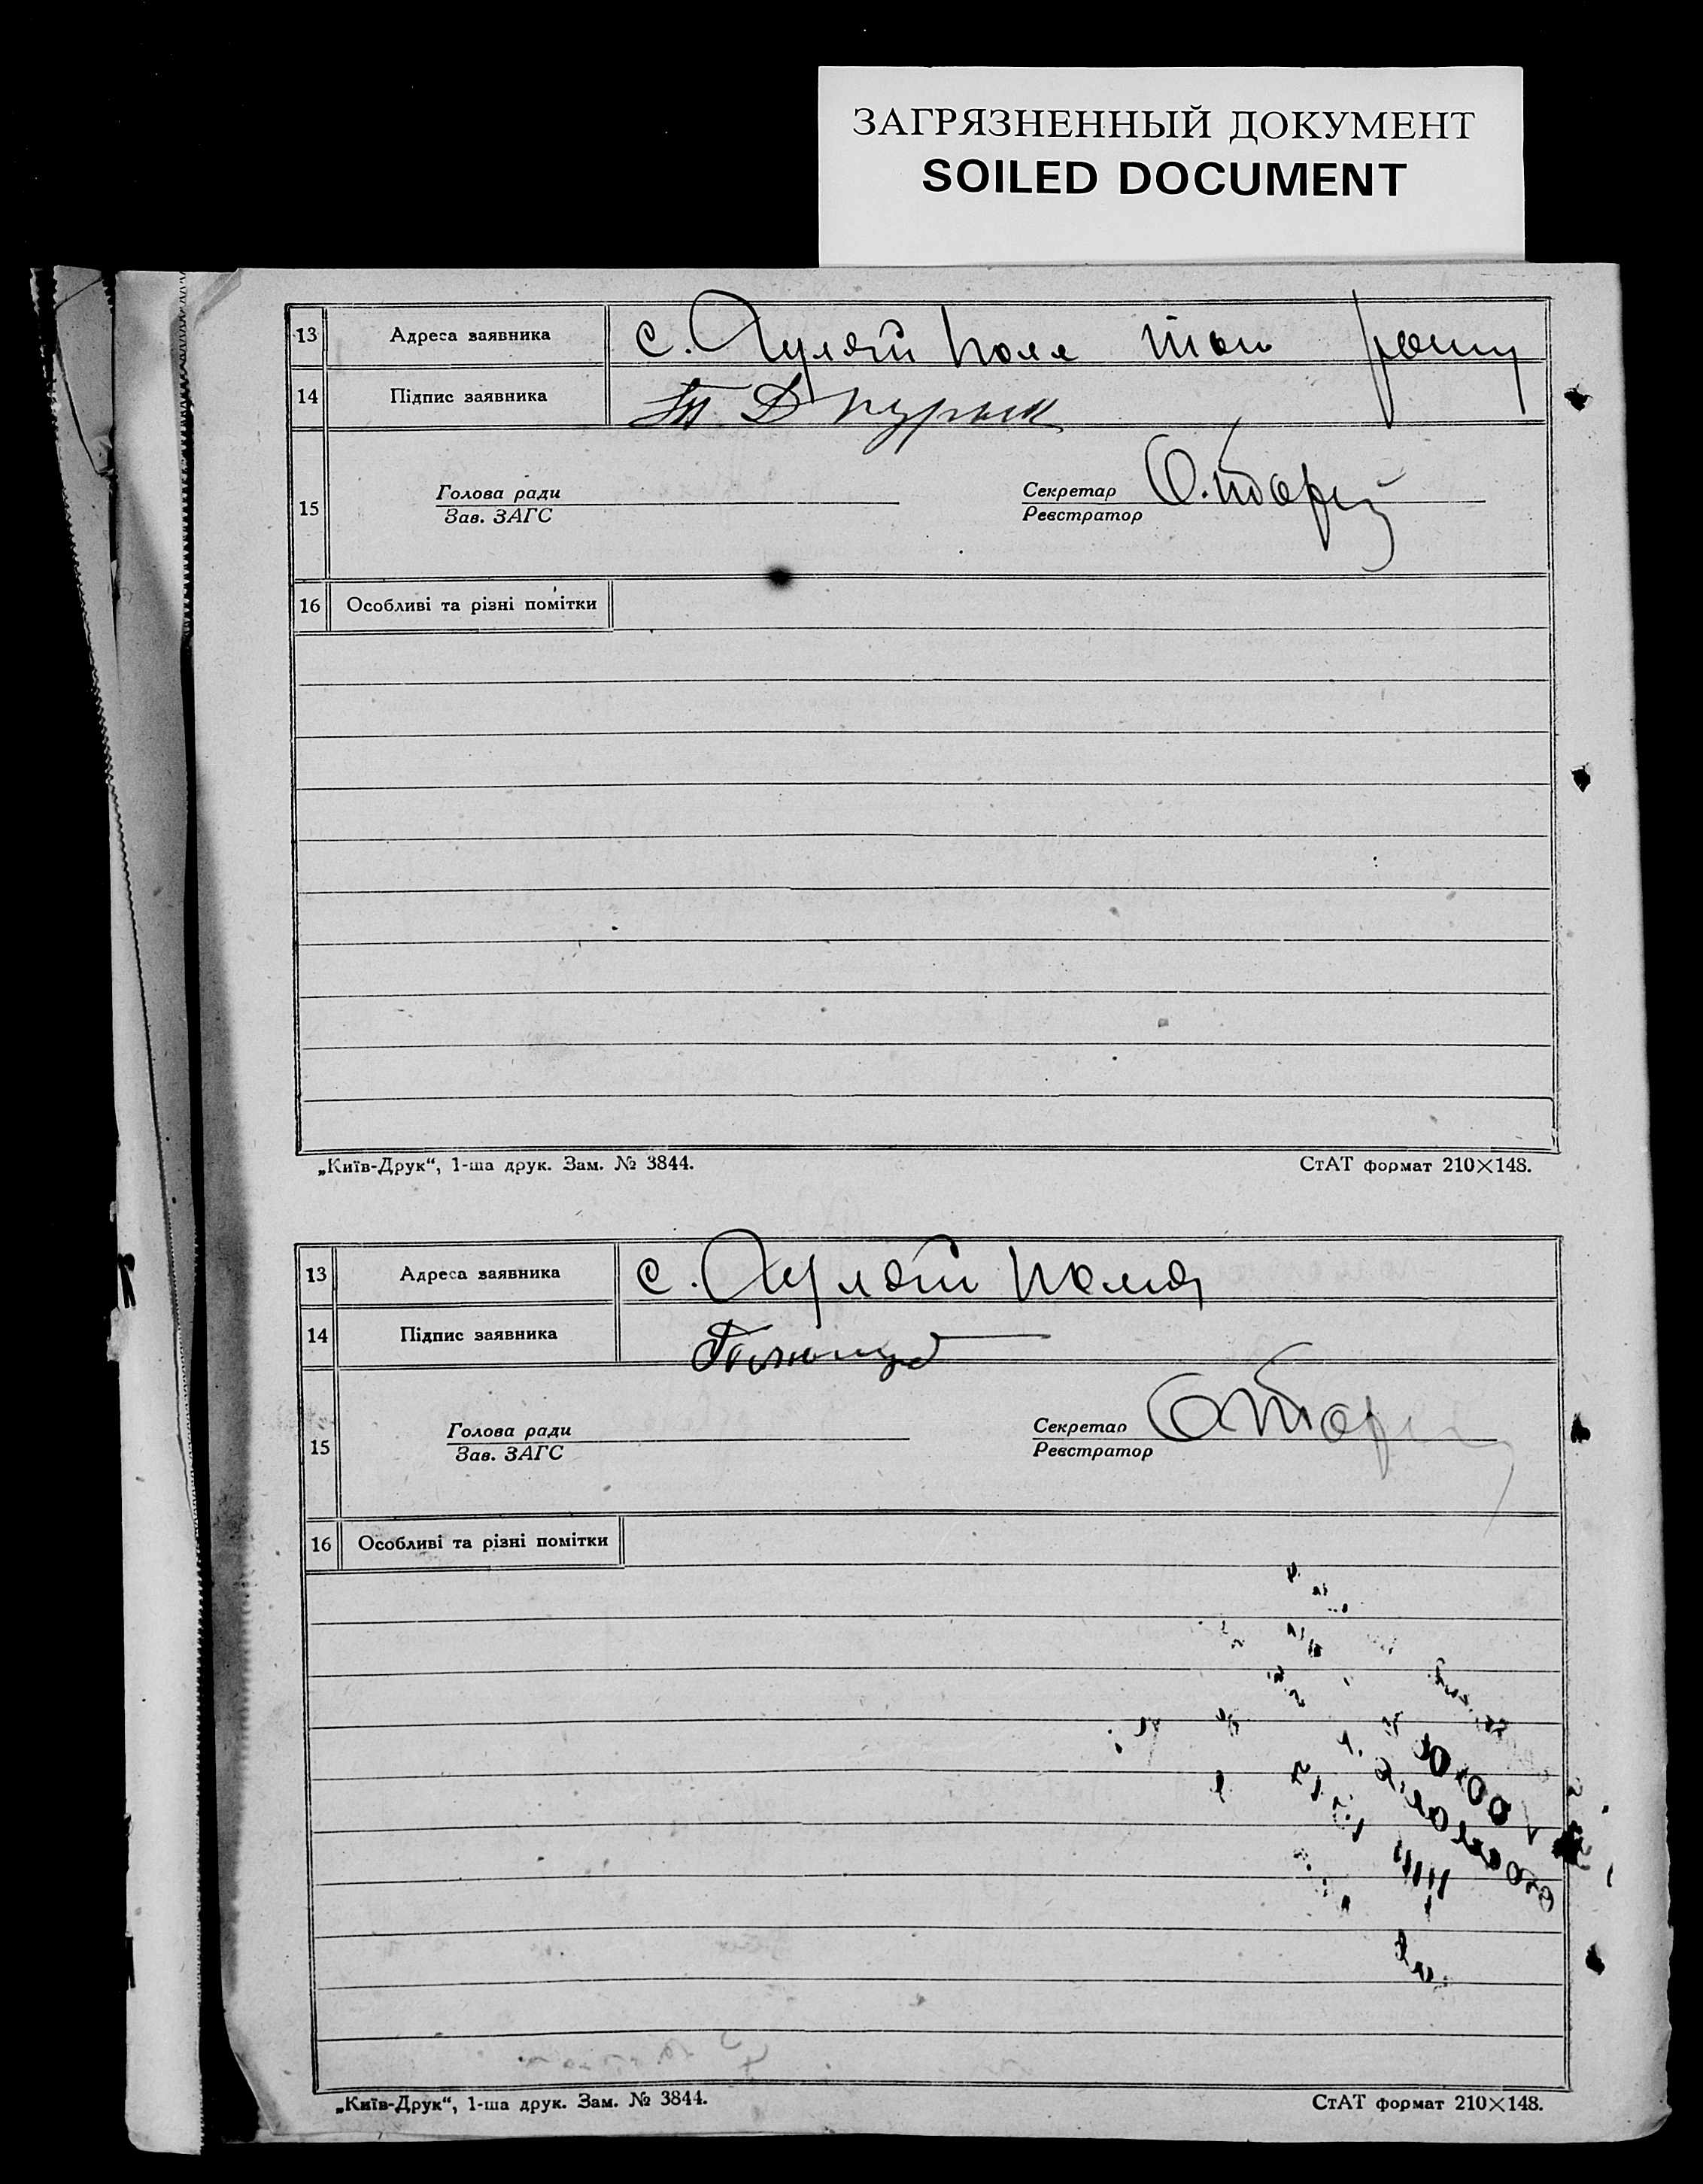 ЗАГРЯЗНЕННЫЙ ДОКУМЕНТ
SOILED DOCUMENT
13 Адреса заявника с. Гуляй Поле
14 Підпис заявника
15 Голова ради Секретар
Зав. ЗАГС Реєстратор
16 Особливі та різні помітки
„Київ-Друк“, 1-ша друк. Зам. № 3844. СтАТ формат 210×148.
13 Адреса заявника с. Гуляй
14 Підпис заявника
15 Голова ради Секретар
Зав. ЗАГС Реєстратор
16 Особливі та різні помітки
„Київ-Друк“, 1-ша друк. Зам. № 3844. СтАТ формат 210×148.